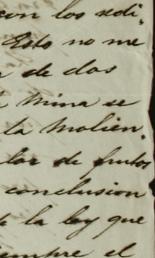 con los sedi-
Esto no me
de dos
mina se
la molien-
lor de frutos
conclusion
la ley que
siempre el